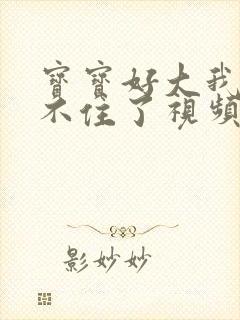 寶寶好大我
不住了視頻
影妙妙